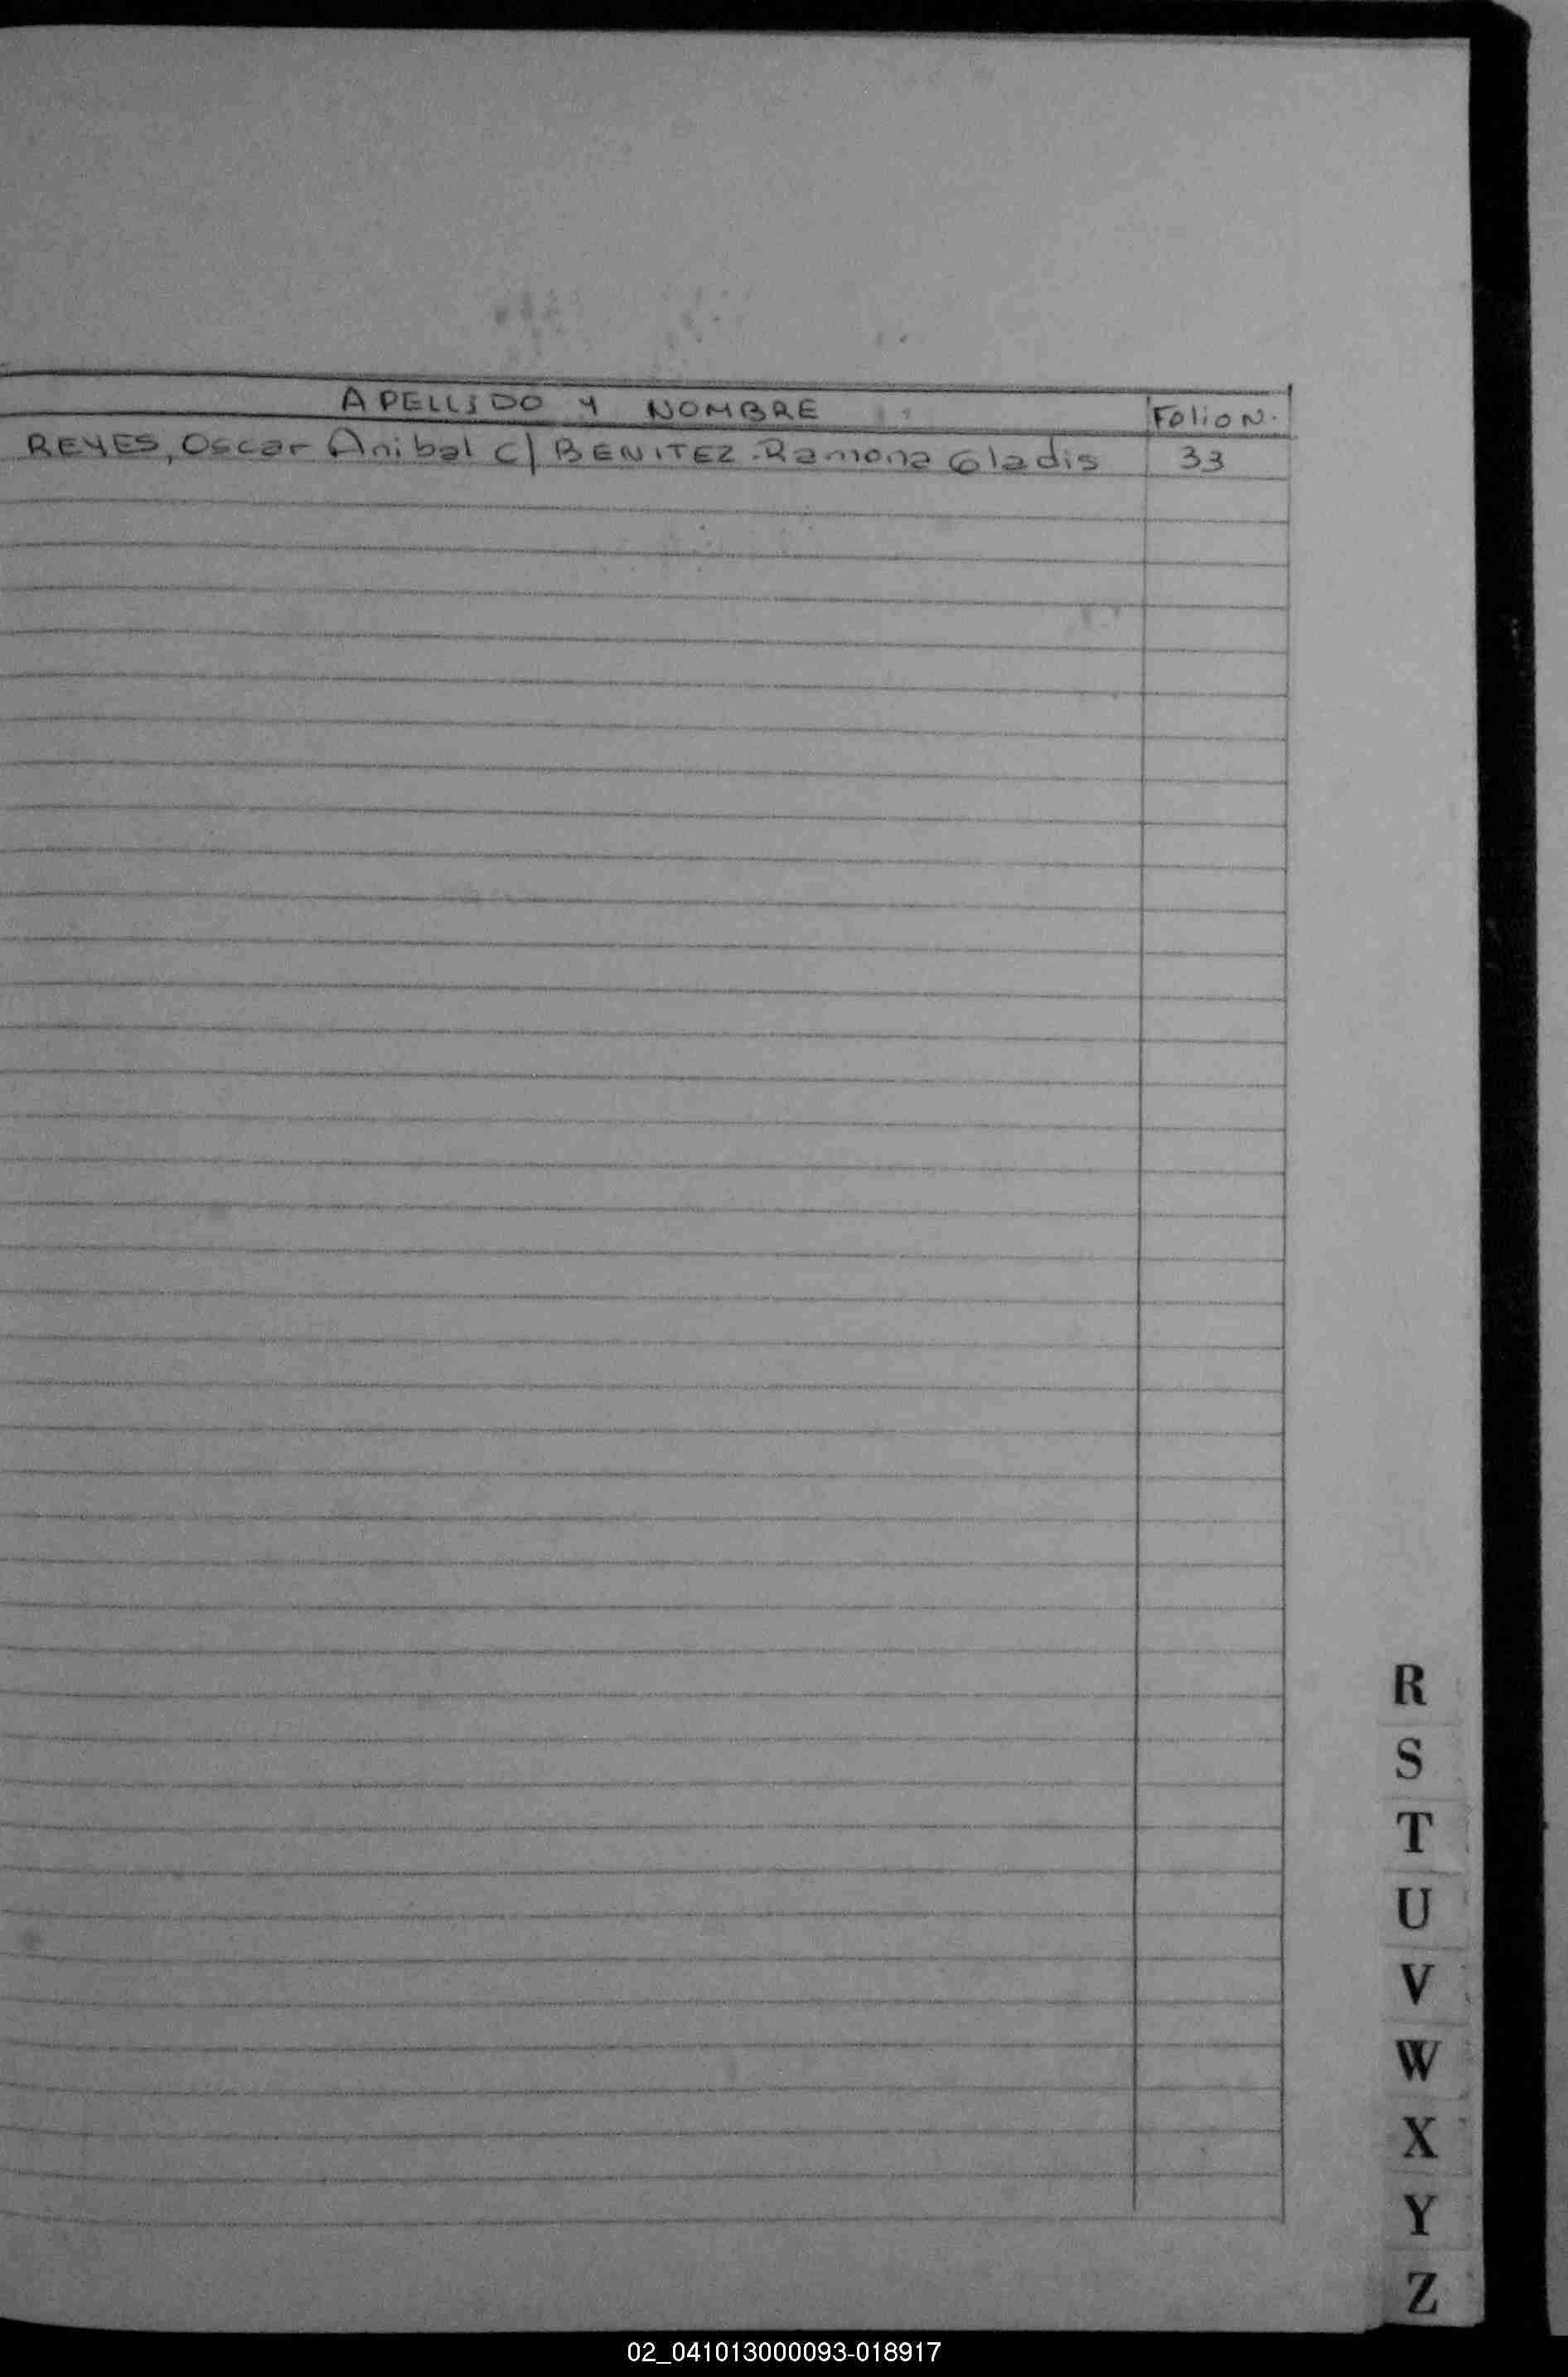 APELLIDO Y NOMBRE Folio N.
REYES, Oscar Anibal c/ BENITEZ. Ramona Gladis 33
R
S
T
U
V
W
X
Y
Z
02_041013000093-018917